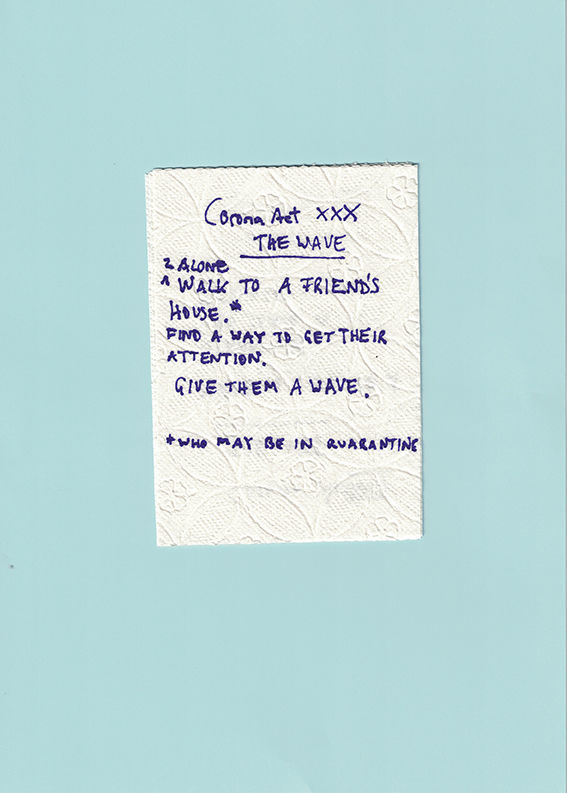 Corona Act XXX
THE WAVE
2 ALONE
1 WALK TO A FRIEND'S
HOUSE.*
FIND A WAY TO GET THEIR
ATTENTION.
GIVE THEM A WAVE.
*WHO MAY BE IN QUARANTINE